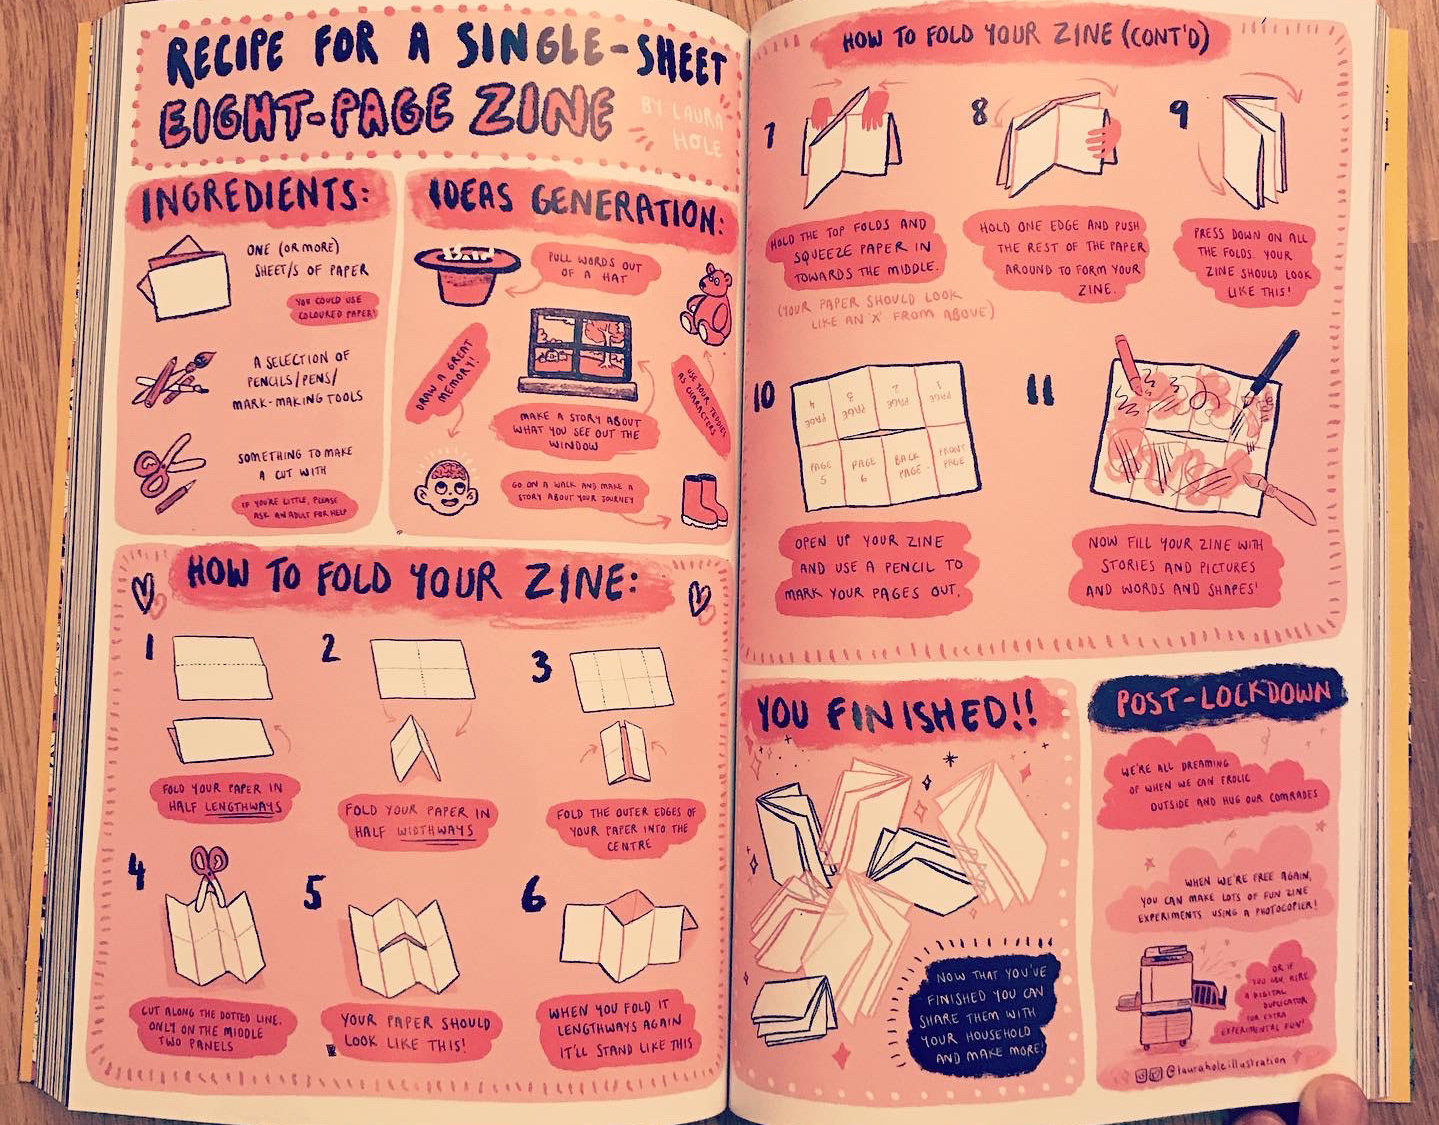 RECIPE FOR A SINGLE-SHEET
EIGHT-PAGE ZINE
BY LAURA
HOLE
INGREDIENTS:
ONE (OR MORE)
SHEET/S OF PAPER
YOU COULD USE
COLOURED PAPER!
A SELECTION OF
PENCILS/PENS/
MARK-MAKING TOOLS
SOMETHING TO MAKE
A CUT WITH
IF YOU'RE LITTLE, PLEASE
ASK AN ADULT FOR HELP
IDEAS GENERATION:
PULL WORDS OUT
OF A HAT
DRAW A GREAT
MEMORY!
MAKE A STORY ABOUT
WHAT YOU SEE OUT THE
WINDOW
USE YOUR TEDDIES
AS CHARACTERS
GO ON A WALK AND MAKE A
STORY ABOUT YOUR JOURNEY
HOW TO FOLD YOUR ZINE:
1
FOLD YOUR PAPER IN
HALF LENGTHWAYS
2
FOLD YOUR PAPER IN
HALF WIDTHWAYS
3
FOLD THE OUTER EDGES OF
YOUR PAPER INTO THE
CENTRE
4
CUT ALONG THE DOTTED LINE.
ONLY ON THE MIDDLE
TWO PANELS
5
YOUR PAPER SHOULD
LOOK LIKE THIS!
6
WHEN YOU FOLD IT
LENGTHWAYS AGAIN
IT'LL STAND LIKE THIS
HOW TO FOLD YOUR ZINE (CONT'D)
7
HOLD THE TOP FOLDS AND
SQUEEZE PAPER IN
TOWARDS THE MIDDLE.
(YOUR PAPER SHOULD LOOK
LIKE AN 'X' FROM ABOVE)
8
HOLD ONE EDGE AND PUSH
THE REST OF THE PAPER
AROUND TO FORM YOUR
ZINE.
9
PRESS DOWN ON ALL
THE FOLDS. YOUR
ZINE SHOULD LOOK
LIKE THIS!
10
PAGE 4
PAGE 3
PAGE 2
PAGE 1
PAGE 5
PAGE 6
BACK PAGE
FRONT PAGE
OPEN UP YOUR ZINE
AND USE A PENCIL TO
MARK YOUR PAGES OUT.
11
NOW FILL YOUR ZINE WITH
STORIES AND PICTURES
AND WORDS AND SHAPES!
YOU FINISHED!!
NOW THAT YOU'VE
FINISHED YOU CAN
SHARE THEM WITH
YOUR HOUSEHOLD
AND MAKE MORE!
POST-LOCKDOWN
WE'RE ALL DREAMING
OF WHEN WE CAN FROLIC
OUTSIDE AND HUG OUR COMRADES
WHEN WE'RE FREE AGAIN,
YOU CAN MAKE LOTS OF FUN ZINE
EXPERIMENTS USING A PHOTOCOPIER!
OR IF
YOU CAN, HIRE
A DIGITAL
DUPLICATOR
FOR EXTRA
EXPERIMENTAL FUN!
@lauraholeillustration